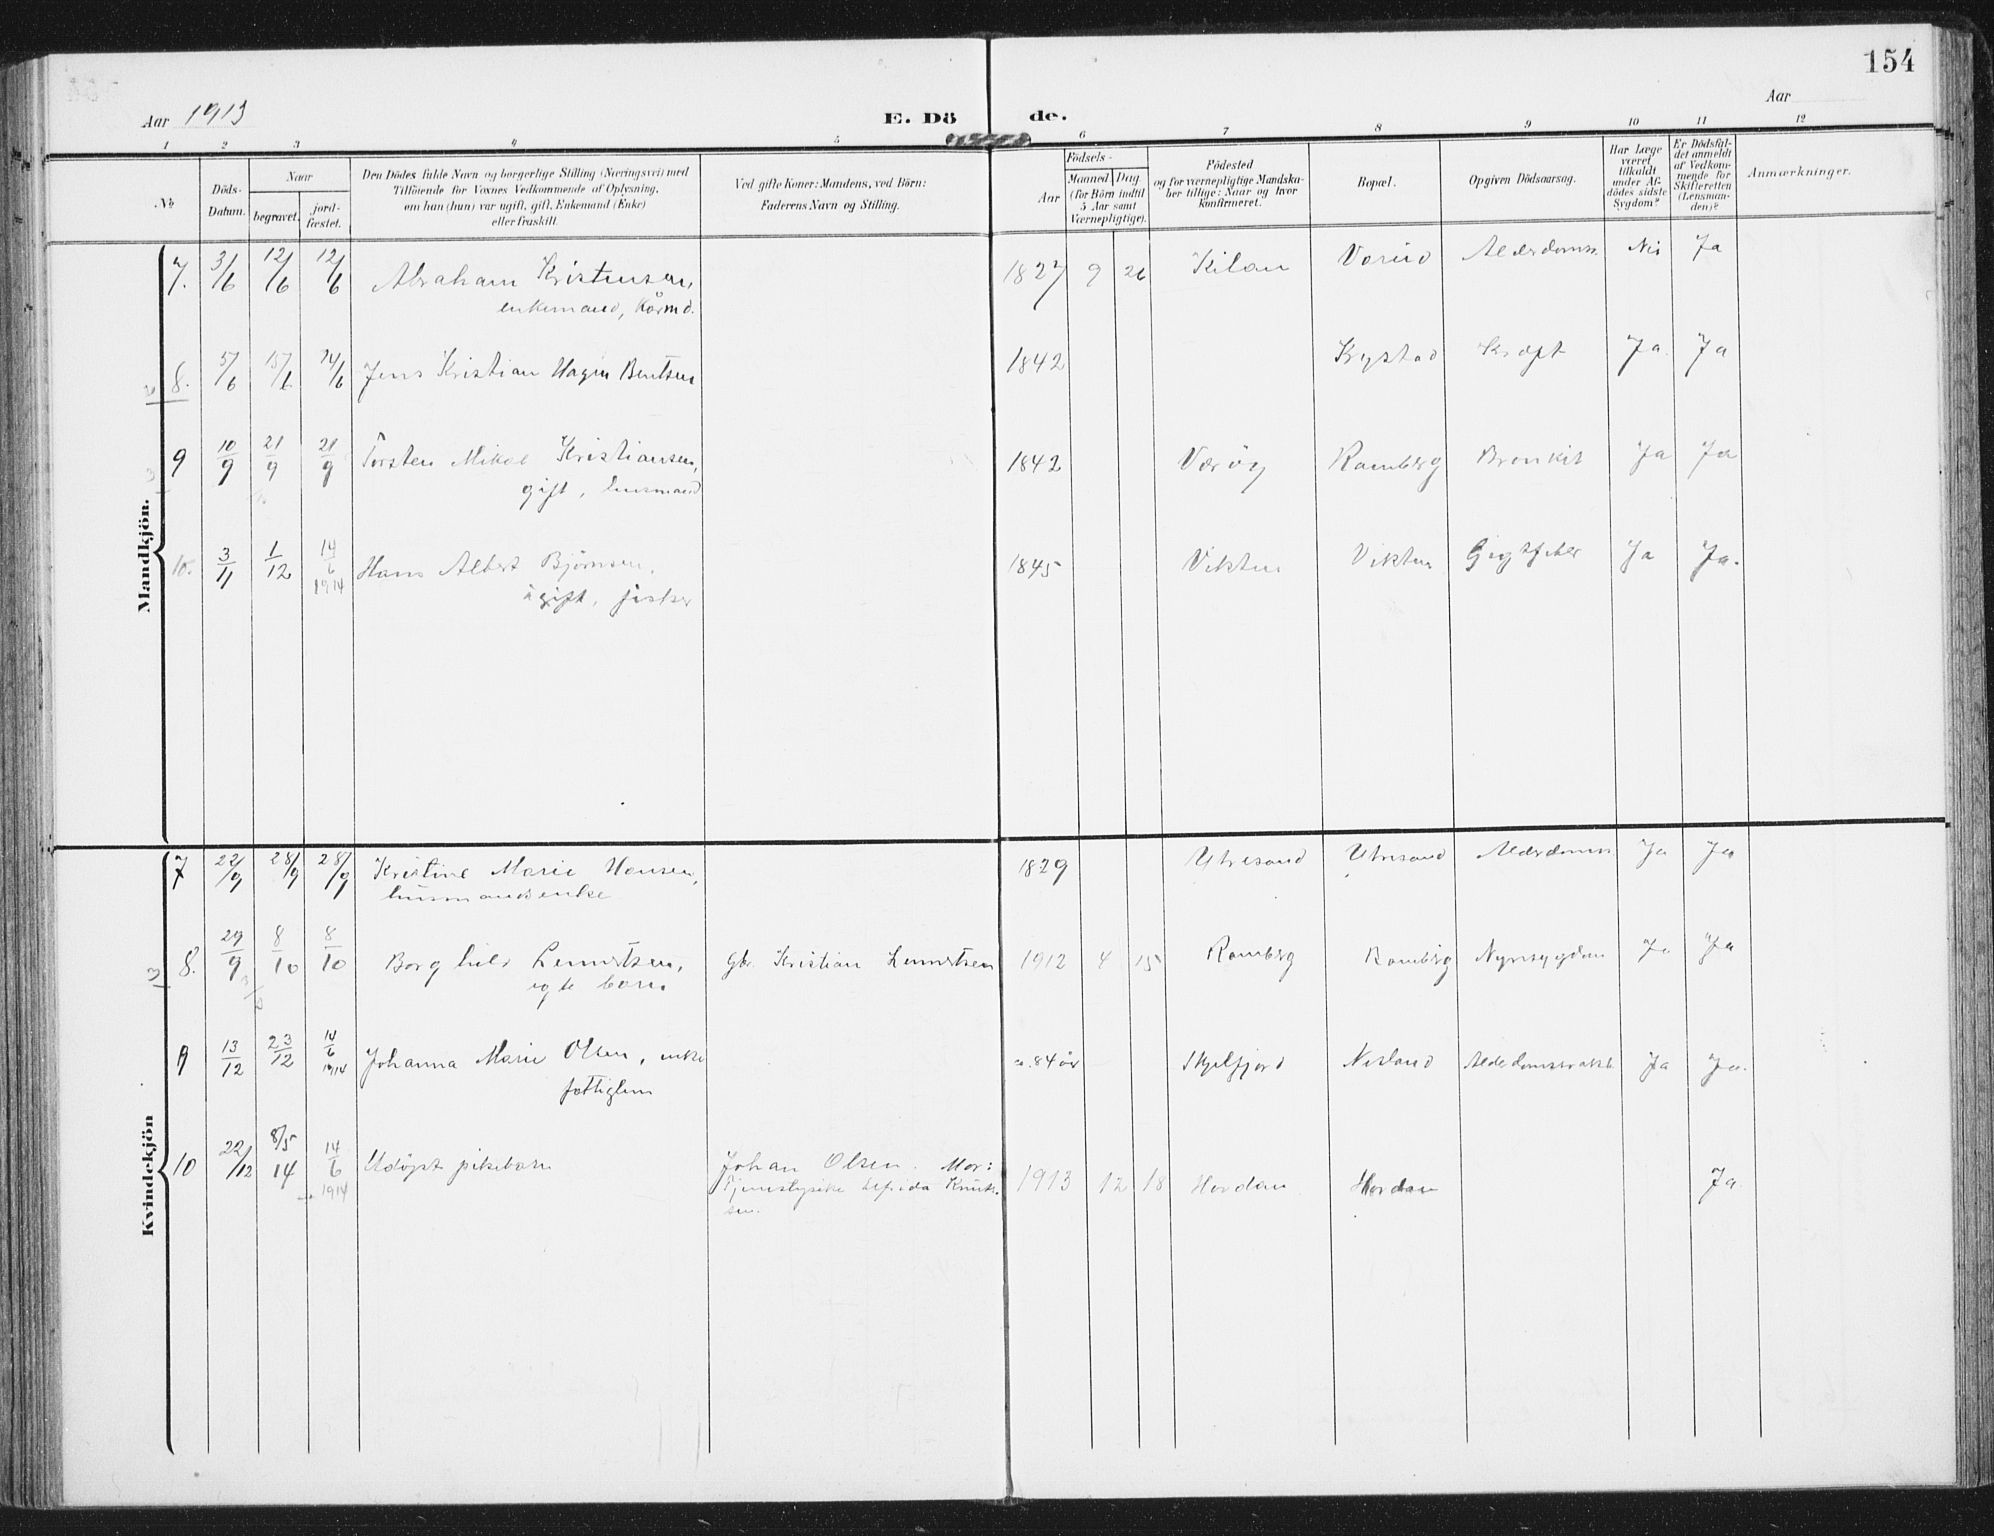 154
Aar 1913
E. Dö de.
Aar
1 2 3 4 5 6 7 8 9 10 11 12
№
Döds-Datum.
Naar
begravet.
jord-fæstet.
Den Dödes fulde Navn og borgerlige Stilling (Næringsvei) med
Tilföiende for Voxnes Vedkommende af Oplysning,
om han (hun) var ugift, gift, Enkemand (Enke)
eller fraskilt.
Ved gifte Koner: Mandens, ved Börn:
Faderens Navn og Stilling.
Födsels-
Aar
Maaned Dag
(for Börn indtil
5 Aar samt
Værnepligtige).
Födested
og for værnepligtige Mandska-
ber tillige: Naar og hvor
konfirmeret.
Bopæl.
Opgiven Dödsaarsag.
Har Læge
været
tilkaldt
under Af-
dödes sidste
Sygdom?
Er Dödsfal-
det anmeldt
af Vedkom-
mende for
Skifteretten
(Lensman-
den)?
Anmærkninger.
Mandkjön.
7. 3/6 12/6 12/6 Abraham Kristensen, 1827 9 26 Kilan Vorüd Alderdomss. Nei Ja
enkemand, Kårmd.
8. 5/6 15/6 14/6 Jens Kristian Hagen Bentsen 1842 Krystad Kræft Ja. Ja
9 10/9 21/9 21/9 Torsten Mikal Kristiansen, 1842 Værøy Ramberg Bronkit Ja Ja
gift, husmand
10. 3/11 1/12 14/6 1914 Hans Albert Bjørnsen, 1845 Vikten Vikten Gigtfeber Ja Ja.
ugift, fisker
Kvindekjön
7 22/9 28/9 28/9 Kristine Marie Hansen, 1829 Utresand Utresand Alderdomss Ja Ja
husmandsenke
8. 29/9 8/10 8/10 Borghild Lennertsen, gbr. Kristian Lennertsen 1912 4 15 Ramberg Ramberg Nyresygdom Ja Ja
egte barn
9 13/12 23/12 14/6 1914 Johanna Marie Olsen, enke ca. 84 år Skjelfjord Nesland Alderdomssvakh. Ja Ja.
fattiglem
10 22/12 8/5 14 14/6 1914 Udöpt pikebarn Johan Olsen. Mor: 1913 12 18 Hordan Hordan Ja.
Tjenestepike Alfrida Knut-
sen.